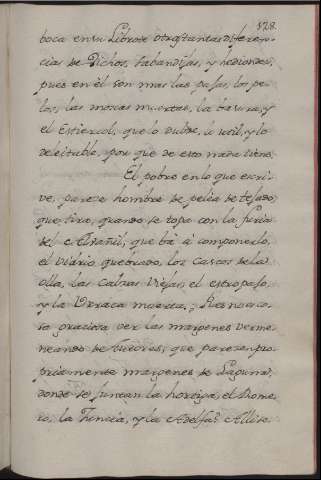 128
boca en su Libro de otras tantas diferen-
cias de Dichos, sabandijas, y hediondes,
pues en él son mas las pajas, los pe-
los, las moscas muertas, la basura, y
el Estiercol, que lo dulce, lo util, y lo
deleitable, por que de esto nada tiene.
El pobre en lo que escri-
ve, parece hombre de pelea de tejado,
que tira, quando se topa con la furia
del Albañil, que bá á componerlo,
el Vidrio quebrado, los Cascos de la
olla, las Calzas Viejas, el estropajo,
y la Urraca muerta. Pues no es co-
sa graciosa ver las margenes berme-
neando de Autores, que parecen pro-
piamente margenes de Laguna,
donde se juntan la hortiga, el Rome-
ro, la Juncia, y la Adelfa? Alli se